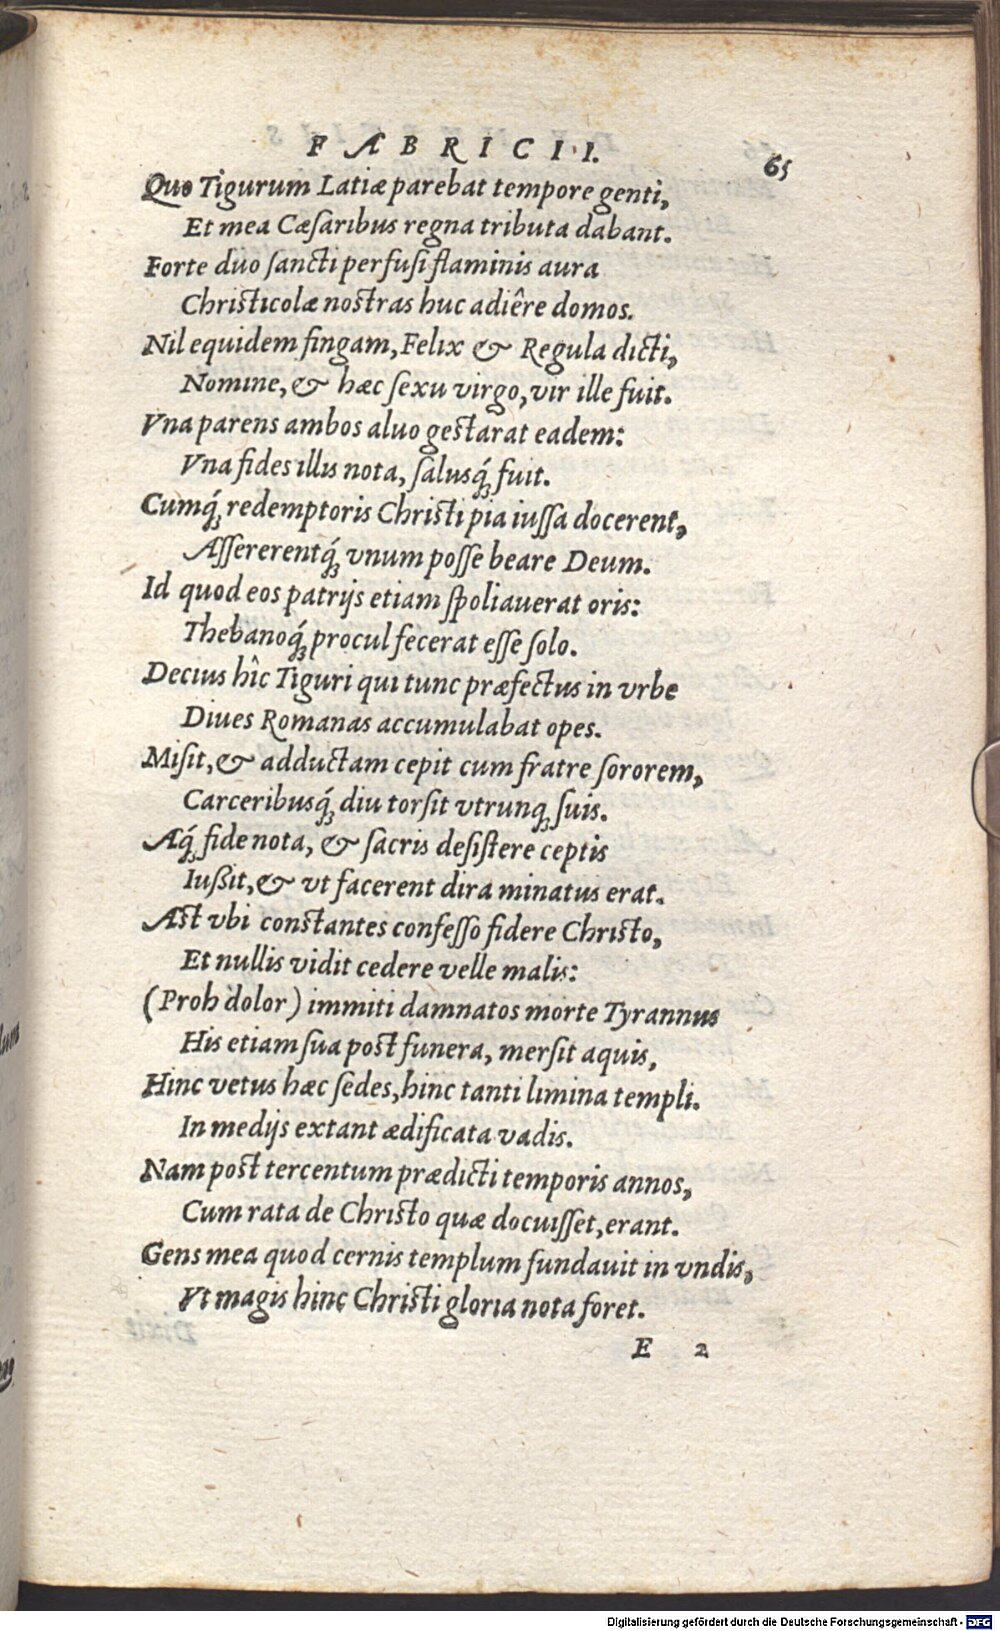 FABRICII. 65
Quo Tigurum Latiæ parebat tempore genti,
Et mea Cæſaribus regna tributa dabant.
Forte duo ſancti perfuſi flaminis aura
Chriſticolæ noſtras huc adiêre domos.
Nil equidem fingam, Felix & Regula dicti,
Nomine, & hæc ſexu virgo, vir ille fuit.
Vna parens ambos aluo geſtarat eadem:
Vna fides illis nota, ſalusq́; fuit.
Cumq́; redemptoris Chriſti pia iuſſa docerent,
Aſſererentq́; vnum poſſe beare Deum.
Id quod eos patrijs etiam ſpoliauerat oris:
Thebanoq́; procul fecerat eſſe ſolo.
Decius hîc Tiguri qui tunc præfectus in vrbe
Diues Romanas accumulabat opes.
Miſit, & adductam cepit cum fratre ſororem,
Carceribusq́; diu torſit vtrunq; ſuis.
Aq́; fide nota, & ſacris deſiſtere ceptis
Iuſsit, & vt facerent dira minatus erat.
Aſt vbi conſtantes confeſſo fidere Chriſto,
Et nullis vidit cedere velle malis:
(Proh dolor) immiti damnatos morte Tyrannus
His etiam ſua poſt funera, merſit aquis,
Hinc vetus hæc ſedes, hinc tanti limina templi.
In medijs extant ædificata vadis.
Nam poſt tercentum prædicti temporis annos,
Cum rata de Chriſto quæ docuiſſet, erant.
Gens mea quod cernis templum fundauit in vndis,
Vt magis hinc Chriſti gloria nota foret.
E 2
Digitalisierung gefördert durch die Deutsche Forschungsgemeinschaft - DFG